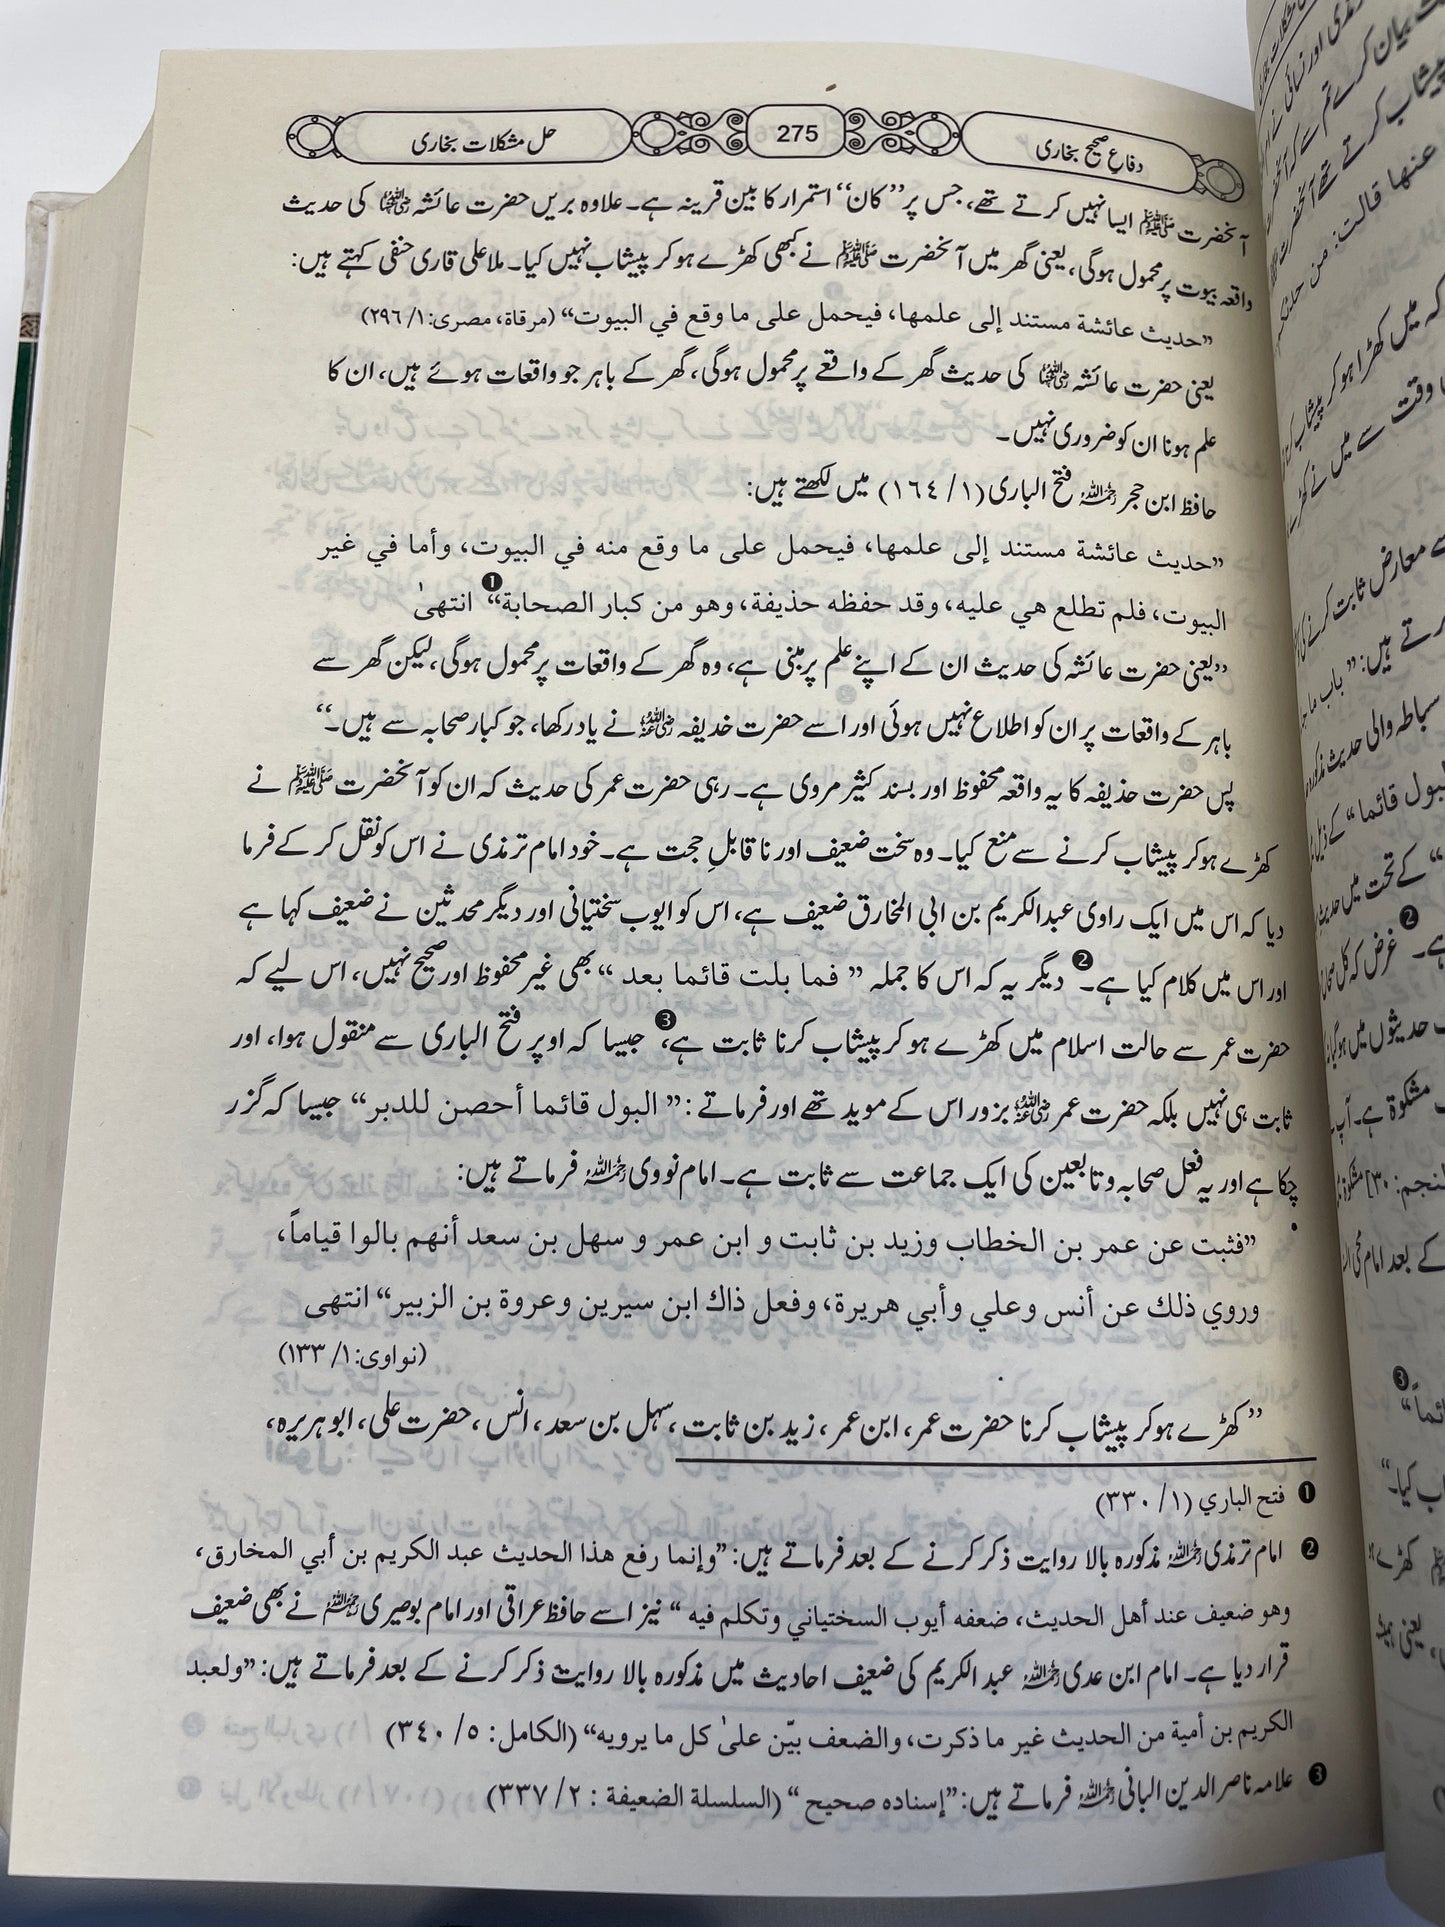 دفاعِ صحیح بخاری
275
حل مشکلات بخاری
آنحضرت ﷺ ایسا نہیں کرتے تھے، جس پر ”کان“ استمرار کا بین قرینہ ہے۔ علاوہ بریں حضرت عائشہ رضی اللہ عنہا کی حدیث
واقعہ بیوت پر محمول ہوگی، یعنی گھر میں آنحضرت ﷺ نے کبھی کھڑے ہو کر پیشاب نہیں کیا۔ ملا علی قاری حنفی کہتے ہیں:
”حديث عائشة مستند إلى علمها، فيحمل على ما وقع في البيوت“ (مرقاة، مصری: ١/ ٢٩٦)
یعنی حضرت عائشہ رضی اللہ عنہا کی حدیث گھر کے واقعے پر محمول ہوگی، گھر کے باہر جو واقعات ہوئے ہیں، ان کا
علم ہونا ان کو ضروری نہیں۔
حافظ ابن حجر رحمہ اللہ فتح الباری (١/ ١٦٤) میں لکھتے ہیں:
”حديث عائشة مستند إلى علمها، فيحمل على ما وقع منه في البيوت، وأما في غير
البيوت، فلم تطلع هي عليه، وقد حفظه حذيفة، وهو من كبار الصحابة“❶ انتهىٰ
”یعنی حضرت عائشہ کی حدیث ان کے اپنے علم پر مبنی ہے، وہ گھر کے واقعات پر محمول ہوگی، لیکن گھر سے
باہر کے واقعات پر ان کو اطلاع نہیں ہوئی اور اسے حضرت خدیفہ رضی اللہ عنہ نے یاد رکھا، جو کبار صحابہ سے ہیں۔“
پس حضرت حذیفہ کا یہ واقعہ محفوظ اور بسند کثیر مروی ہے۔ رہی حضرت عمر کی حدیث کہ ان کو آنحضرت ﷺ نے
کھڑے ہو کر پیشاب کرنے سے منع کیا۔ وہ سخت ضعیف اور نا قابلِ حجت ہے۔ خود امام ترمذی نے اس کو نقل کر کے فرما
دیا کہ اس میں ایک راوی عبدالکریم بن ابی المخارق ضعیف ہے، اس کو ایوب سختیانی اور دیگر محدثین نے ضعیف کہا ہے
اور اس میں کلام کیا ہے۔❷ دیگر یہ کہ اس کا جملہ ” فما بلت قائما بعد “ بھی غیر محفوظ اور صحیح نہیں، اس لیے کہ
حضرت عمر سے حالت اسلام میں کھڑے ہو کر پیشاب کرنا ثابت ہے،❸ جیسا کہ اوپر فتح الباری سے منقول ہوا، اور
ثابت ہی نہیں بلکہ حضرت عمر رضی اللہ عنہ بزور اس کے موید تھے اور فرماتے : ” البول قائما أحصن للدبر“ جیسا کہ گزر
چکا ہے اور یہ فعل صحابہ و تابعین کی ایک جماعت سے ثابت ہے۔ امام نووی رحمہ اللہ فرماتے ہیں:
”فثبت عن عمر بن الخطاب وزيد بن ثابت و ابن عمر و سهل بن سعد أنهم بالوا قياماً،
وروي ذلك عن أنس وعلي وأبي هريرة، وفعل ذاك ابن سيرين وعروة بن الزبير“ انتهى
(نواوی: ١/ ١٣٣)
”کھڑے ہو کر پیشاب کرنا حضرت عمر، ابن عمر، زید بن ثابت، سہل بن سعد، انس، حضرت علی، ابو ہریرہ،
❶ فتح الباري (١/ ٣٣٠)
❷ امام ترمذی رحمہ اللہ مذکورہ بالا روایت ذکر کرنے کے بعد فرماتے ہیں: ”وإنما رفع هذا الحديث عبد الكريم بن أبي المخارق،
وهو ضعيف عند أهل الحديث، ضعفه أيوب السختياني وتكلم فيه “ نیز اسے حافظ عراقی اور امام بوصیری رحمہ اللہ نے بھی ضعیف
قرار دیا ہے۔ امام ابن عدی رحمہ اللہ عبد الکریم کی ضعیف احادیث میں مذکورہ بالا روایت ذکر کرنے کے بعد فرماتے ہیں: ”ولعبد
الكريم بن أمية من الحديث غير ما ذكرت، والضعف بيّن علىٰ كل ما يرويه“ (الكامل: ٥/ ٣٤٠)
❸ علامہ ناصر الدین البانی رحمہ اللہ فرماتے ہیں: ”إسناده صحيح “ (السلسلة الضعيفة : ٢/ ٣٣٧)